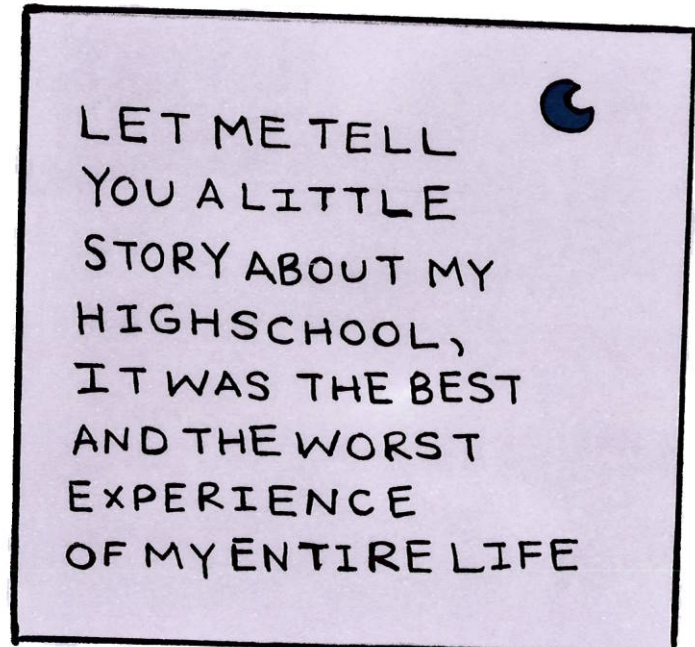 LET ME TELL
YOU A LITTLE
STORY ABOUT MY
HIGHSCHOOL,
IT WAS THE BEST
AND THE WORST
EXPERIENCE
OF MY ENTIRE LIFE